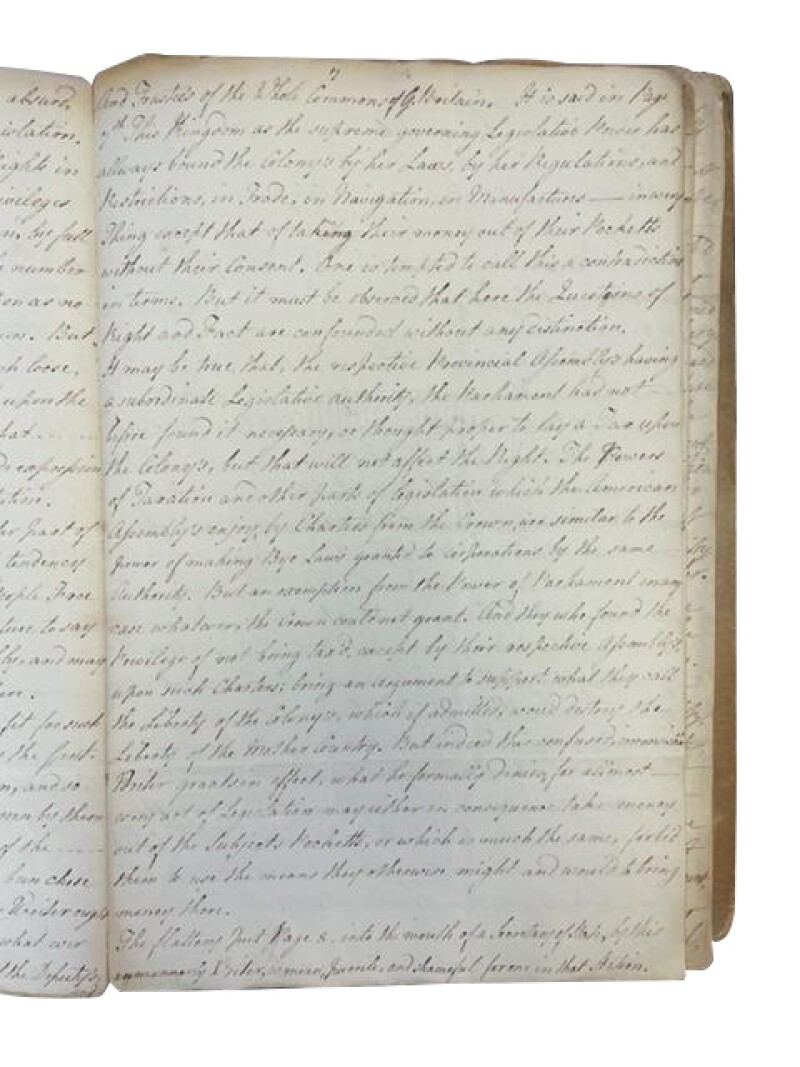 absurd,
islation,
Rights in
ivileges
by full
number
on as no
But
loose,
upon the
hat
exposition
ation.
part of
tendency
eople Free
to say
and may
fit for such
the first.
and so
by them
of the
been chose
Writer ought
what wer
the Deputy's
7
And Trustees of the Whole Commons of G. Britain. It is said in Page
7th This Kingdom as the supreme governing Legislative Power has
allways bound the Colony's by her Laws, by her Regulations, and
Restrictions, in Trade, in Navigation, in Manufactures — in every
Thing except that of taking their money out of their Pocketts
without their Consent. One is tempted to call this a contradiction
in terms. But it must be observed that here the Questions of
Right and Fact are confounded without any distinction.
It may be true that, the respective Provincial Assemblys having
a subordinate Legislative authority, the Parliament had not —
before found it necessary, or thought proper to lay a Tax upon
the Colony's, but that will not affect the Right. The Powers
of Taxation and other parts of Legislation which the American
Assembly's enjoy, by Charters from the Crown, are similar to the
power of making Bye Laws granted to Corporations by the same
Authority. But an exemption from the Power of Parliament in any
case whatever, the Crown could not grant. And they who found the
Priviledge of not being tax'd, except by their respective Assemblys,
upon such Charters, bring an argument to support what they call
the Liberty of the Colony's, which if admitted, would destroy the
Liberty of the Mother Country. But indeed this confused,
Writer grants in effect, what he formally denies, for allmost —
every act of Legislation may either in consequence take money
out of the Subjects Pocketts, or which is much the same, forbid
them to use the means they otherwise might and would to bring
money there.
The flattery put Page 8. into the mouth of a Secretary of State, by this
unmannerly Writer, is mean, and shameful for one in that Station.